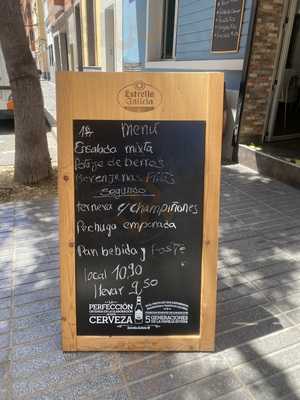 Estrella
Galicia
1º Menú
Ensalada mixta
Potaje de berros
Berenjenas fritas
Segundo
ternera c/ champiñones
Pechuga empanada
Pan bebida y postre
local 10,90
llevar 9,50
PERFECCIÓN
CERVEZA
5 GENERACIONES